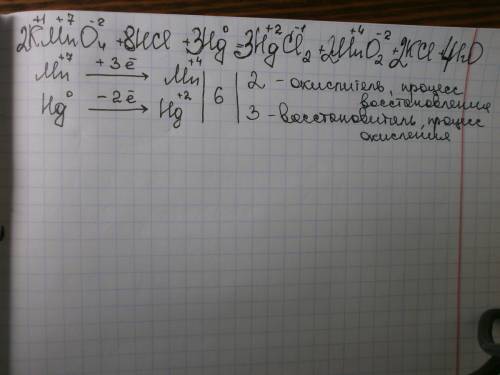 2K⁺¹Mn⁺⁷O₄⁻² + 8HCl + 3Hg⁰ = 3Hg⁺²Cl₂⁻¹ + 2Mn⁺⁴O₂⁻² + 2KCl + 4H₂O
Mn⁺⁷ +3ē → Mn⁺⁴ | 6 | 2 - окислитель, процесс восстановления
Hg⁰ -2ē → Hg⁺² | 3 - восстановитель, процесс окисления